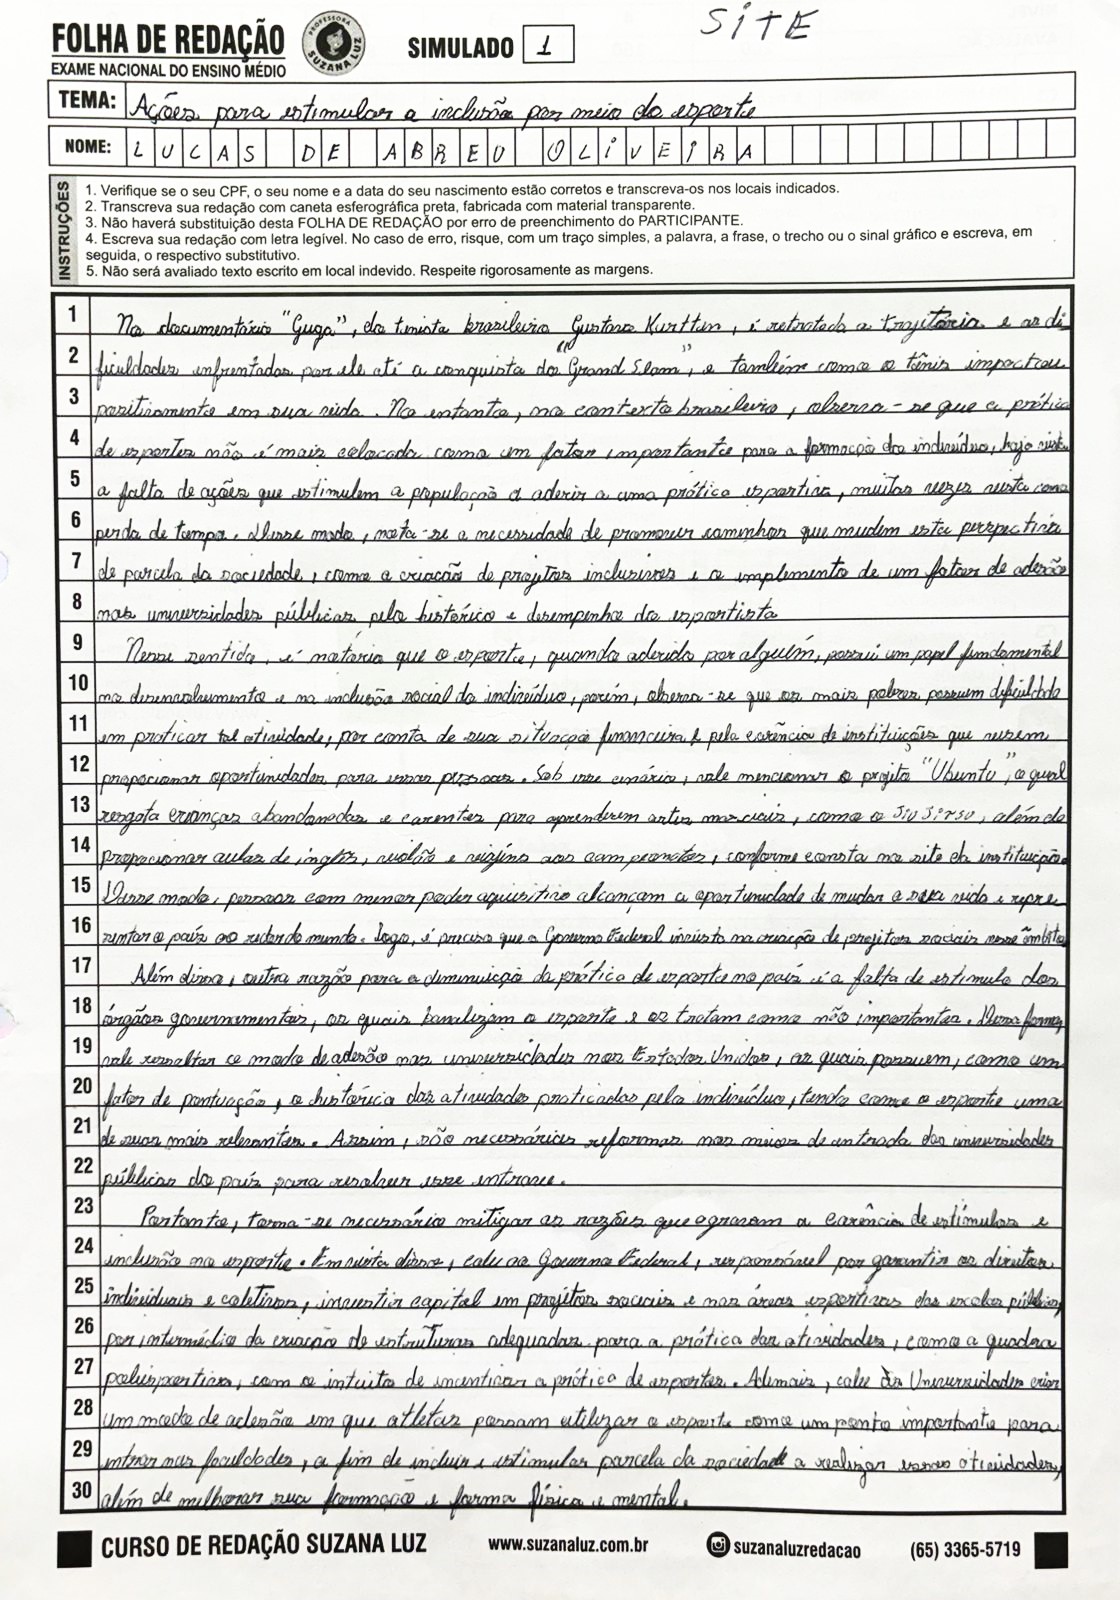 SITE
FOLHA DE REDAÇÃO
EXAME NACIONAL DO ENSINO MÉDIO
PROFESSORA SUZANA LUZ
SIMULADO 1
TEMA: Ações para estimular a inclusão por meio do esporte
NOME: LUCAS DE ABREU OLIVEIRA
INSTRUÇÕES
1. Verifique se o seu CPF, o seu nome e a data do seu nascimento estão corretos e transcreva-os nos locais indicados.
2. Transcreva sua redação com caneta esferográfica preta, fabricada com material transparente.
3. Não haverá substituição desta FOLHA DE REDAÇÃO por erro de preenchimento do PARTICIPANTE.
4. Escreva sua redação com letra legível. No caso de erro, risque, com um traço simples, a palavra, a frase, o trecho ou o sinal gráfico e escreva, em
seguida, o respectivo substitutivo.
5. Não será avaliado texto escrito em local indevido. Respeite rigorosamente as margens.
1 No documentário "Guga", do tenista brasileiro Gustavo Kurtten, é retratada a trajetória e as di
2 ficuldades enfrentadas por ele até a conquista do "Grand Slam", e também como o tênis impactou
3 positivamente em sua vida. No entanto, no contexto brasileiro, observa-se que a prática
4 de esportes não é mais colocada como um fator importante para a formação do indivíduo, haja vista
5 a falta de ações que estimulem a população a aderir a uma prática esportiva, muitas vezes vista como
6 perda de tempo. Desse modo, nota-se a necessidade de promover caminhos que mudem esta perspectiva
7 de parcela da sociedade, como a criação de projetos inclusivos e o implemento de um fator de adesão
8 nas universidades públicas pelo histórico e desempenho do esportista
9 Nesse sentido, é notório que o esporte, quando aderido por alguém, possui um papel fundamental
10 no desenvolvimento e na inclusão social do indivíduo, porém, observa-se que os mais pobres possuem dificuldade
11 em praticar tal atividade, por conta de sua situação financeira e pela carência de instituições que visem
12 proporcionar oportunidades para essas pessoas. Sob esse cenário, vale mencionar o projeto "Ubuntu", o qual
13 resgata crianças abandonadas e carentes para aprenderem artes marciais, como o Jiu Jitsu, além de
14 proporcionar aulas de inglês, violão e viagens aos campeonatos, conforme consta no site da instituição.
15 Desse modo, pessoas com menor poder aquisitivo alcançam a oportunidade de mudar a sua vida e repre
16 sentar o país ao redor do mundo. Logo, é preciso que o Governo Federal invista na criação de projetos sociais nesse âmbito
17 Além disso, outra razão para a diminuição da prática de esporte no país é a falta de estimulo dos
18 órgãos governamentais, os quais banalizam o esporte e os tratam como não importantes. Dessa forma,
19 vale ressaltar o modo de adesão nas universidades nos Estados Unidos, as quais possuem, como um
20 fator de pontuação, o histórico das atividades praticadas pelo indivíduo, tendo como o esporte uma
21 de suas mais relevantes. Assim, são necessárias reformas nos meios de entrada das universidades
22 públicas do país para resolver esse entrave.
23 Portanto, torna-se necessário mitigar as razões que agravam a carência de estímulos e
24 inclusão no esporte. Em vista disso, cabe ao Governo Federal, responsável por garantir os direitos
25 individuais e coletivos, investir capital em projetos sociais e nas áreas esportivas das escolas públicas,
26 por intermédio da criação de estruturas adequadas para a prática das atividades, como a quadra
27 poliesportiva, com o intuito de incentivar a prática de esportes. Ademais, cabe às Universidades criar
28 um modo de adesão em que atletas possam utilizar o esporte como um ponto importante para
29 entrar nas faculdades, a fim de incluir e estimular parcela da sociedade a realizar essas atividades,
30 além de melhorar sua formação e forma física e mental.
CURSO DE REDAÇÃO SUZANA LUZ
www.suzanaluz.com.br
suzanaluzredacao
(65) 3365-5719